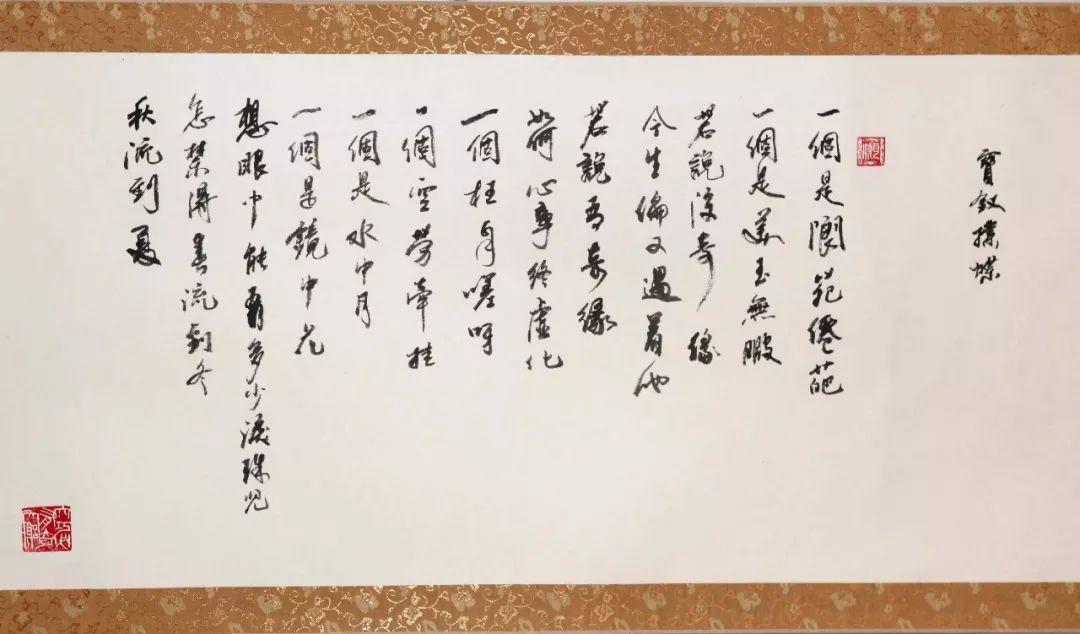 寶釵撲蝶
一個是閬苑僊葩
一個是美玉無瑕
若說沒奇緣
今生偏又遇着他
若說有奇緣
如何心事終虛化
一個枉自嗟呀
一個空勞牽挂
一個是水中月
一個是鏡中花
想眼中能有多少淚珠兒
怎禁得春流到冬
秋流到夏